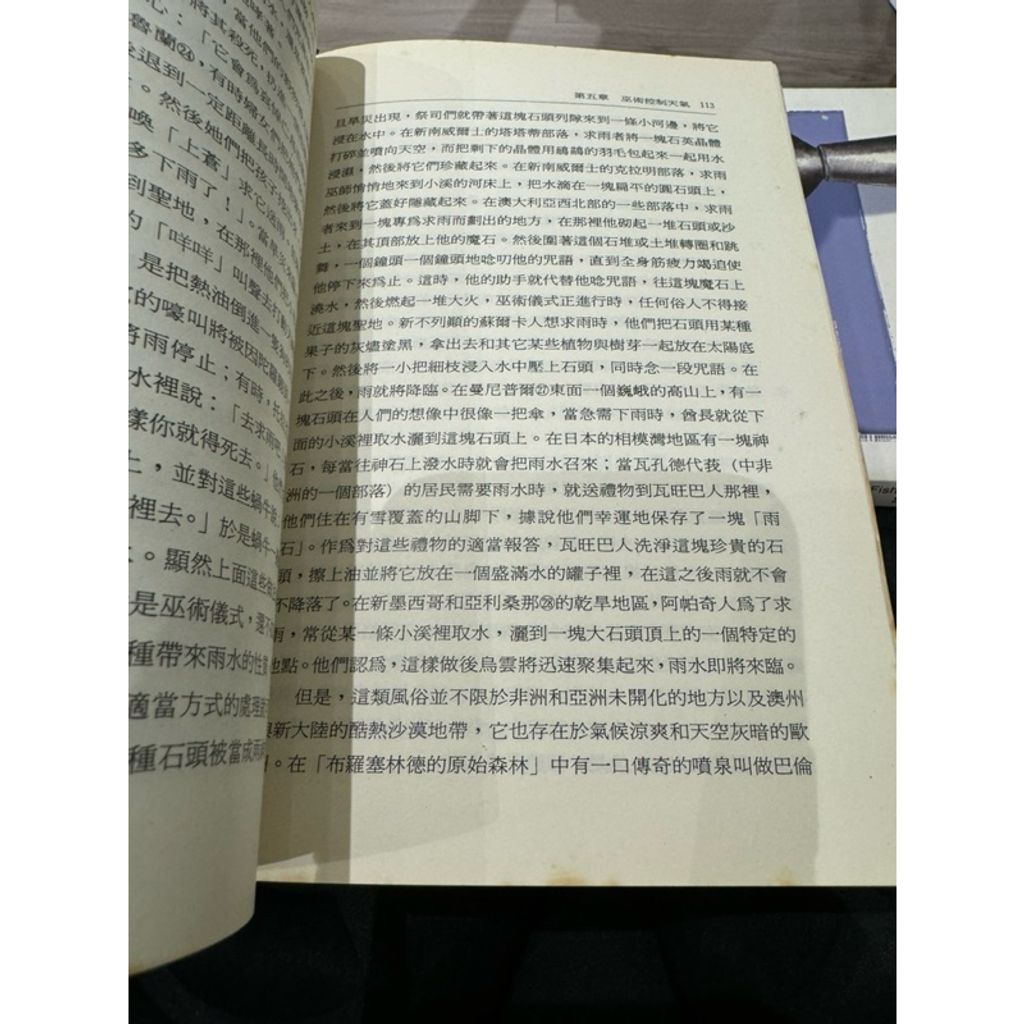 第五章　巫術控制天氣　113
旦旱災出現，祭司們就帶著這塊石頭列隊來到一條小河邊，將它
浸在水中。在新南威爾士的塔塔蒂部落，求雨者將一塊石英晶體
打碎並噴向天空，而把剩下的晶體用鴯鶓的羽毛包起來一起用水
浸濕，然後將它們珍藏起來。在新南威爾士的克拉明部落，求雨
巫師悄悄地來到小溪的河床上，把水滴在一塊扁平的圓石頭上，
然後將它蓋好隱藏起來。在澳大利亞西北部的一些部落中，求雨
者來到一塊專爲求雨而劃出的地方，在那裡他砌起一堆石頭或沙
土，在其頂部放上他的魔石。然後圍著這個石堆或土堆轉圈和跳
舞，一個鐘頭一個鐘頭地唸叨他的咒語，直到全身筋疲力竭迫使
他停下來爲止。這時，他的助手就代替他唸咒語，往這塊魔石上
澆水，然後燃起一堆大火，巫術儀式正進行時，任何俗人不得接
近這塊聖地。新不列顛的蘇爾卡人想求雨時，他們把石頭用某種
果子的灰燼塗黑，拿出去和其它某些植物與樹芽一起放在太陽底
下。然後將一小把細枝浸入水中壓上石頭，同時念一段咒語。在
此之後，雨就將降臨。在曼尼普爾㉗東面一個巍峨的高山上，有一
塊石頭在人們的想像中很像一把傘，當急需下雨時，酋長就從下
面的小溪裡取水灑到這塊石頭上。在日本的相模灣地區有一塊神
石，每當往神石上潑水時就會把雨水召來；當瓦孔德代莪（中非
洲的一個部落）的居民需要雨水時，就送禮物到瓦旺巴人那裡，
他們住在有雪覆蓋的山脚下，據說他們幸運地保存了一塊「雨
石」。作爲對這些禮物的適當報答，瓦旺巴人洗淨這塊珍貴的石
頭，擦上油並將它放在一個盛滿水的罐子裡，在這之後雨就不會
不降落了。在新墨西哥和亞利桑那㉘的乾旱地區，阿帕奇人爲了求
雨，常從某一條小溪裡取水，灑到一塊大石頭頂上的一個特定的
地點。他們認爲，這樣做後烏雲將迅速聚集起來，雨水即將來臨。
但是，這類風俗並不限於非洲和亞洲未開化的地方以及澳州
與新大陸的酷熱沙漠地帶，它也存在於氣候涼爽和天空灰暗的歐
。在「布羅塞林德的原始森林」中有一口傳奇的噴泉叫做巴倫
心：「它會爲
魯蘭㉔，有時婦女們
退到一定距離
。然後她們把孩子
喚「上蒼」求它
多下雨了！」。當旱
到聖地，在那裡他們
的「咩咩」叫聲去打動
是把熱油倒進一隻
的嚎叫將被因陀羅
將雨停止；有時，
水裡說：「去求雨吧
樣你就得死去。」
上，並對這些蝸牛說
裡去。」於是蝸牛
。顯然上面這些
是巫術儀式，還不
種帶來雨水的性
適當方式的處理
種石頭被當成雨
Fish